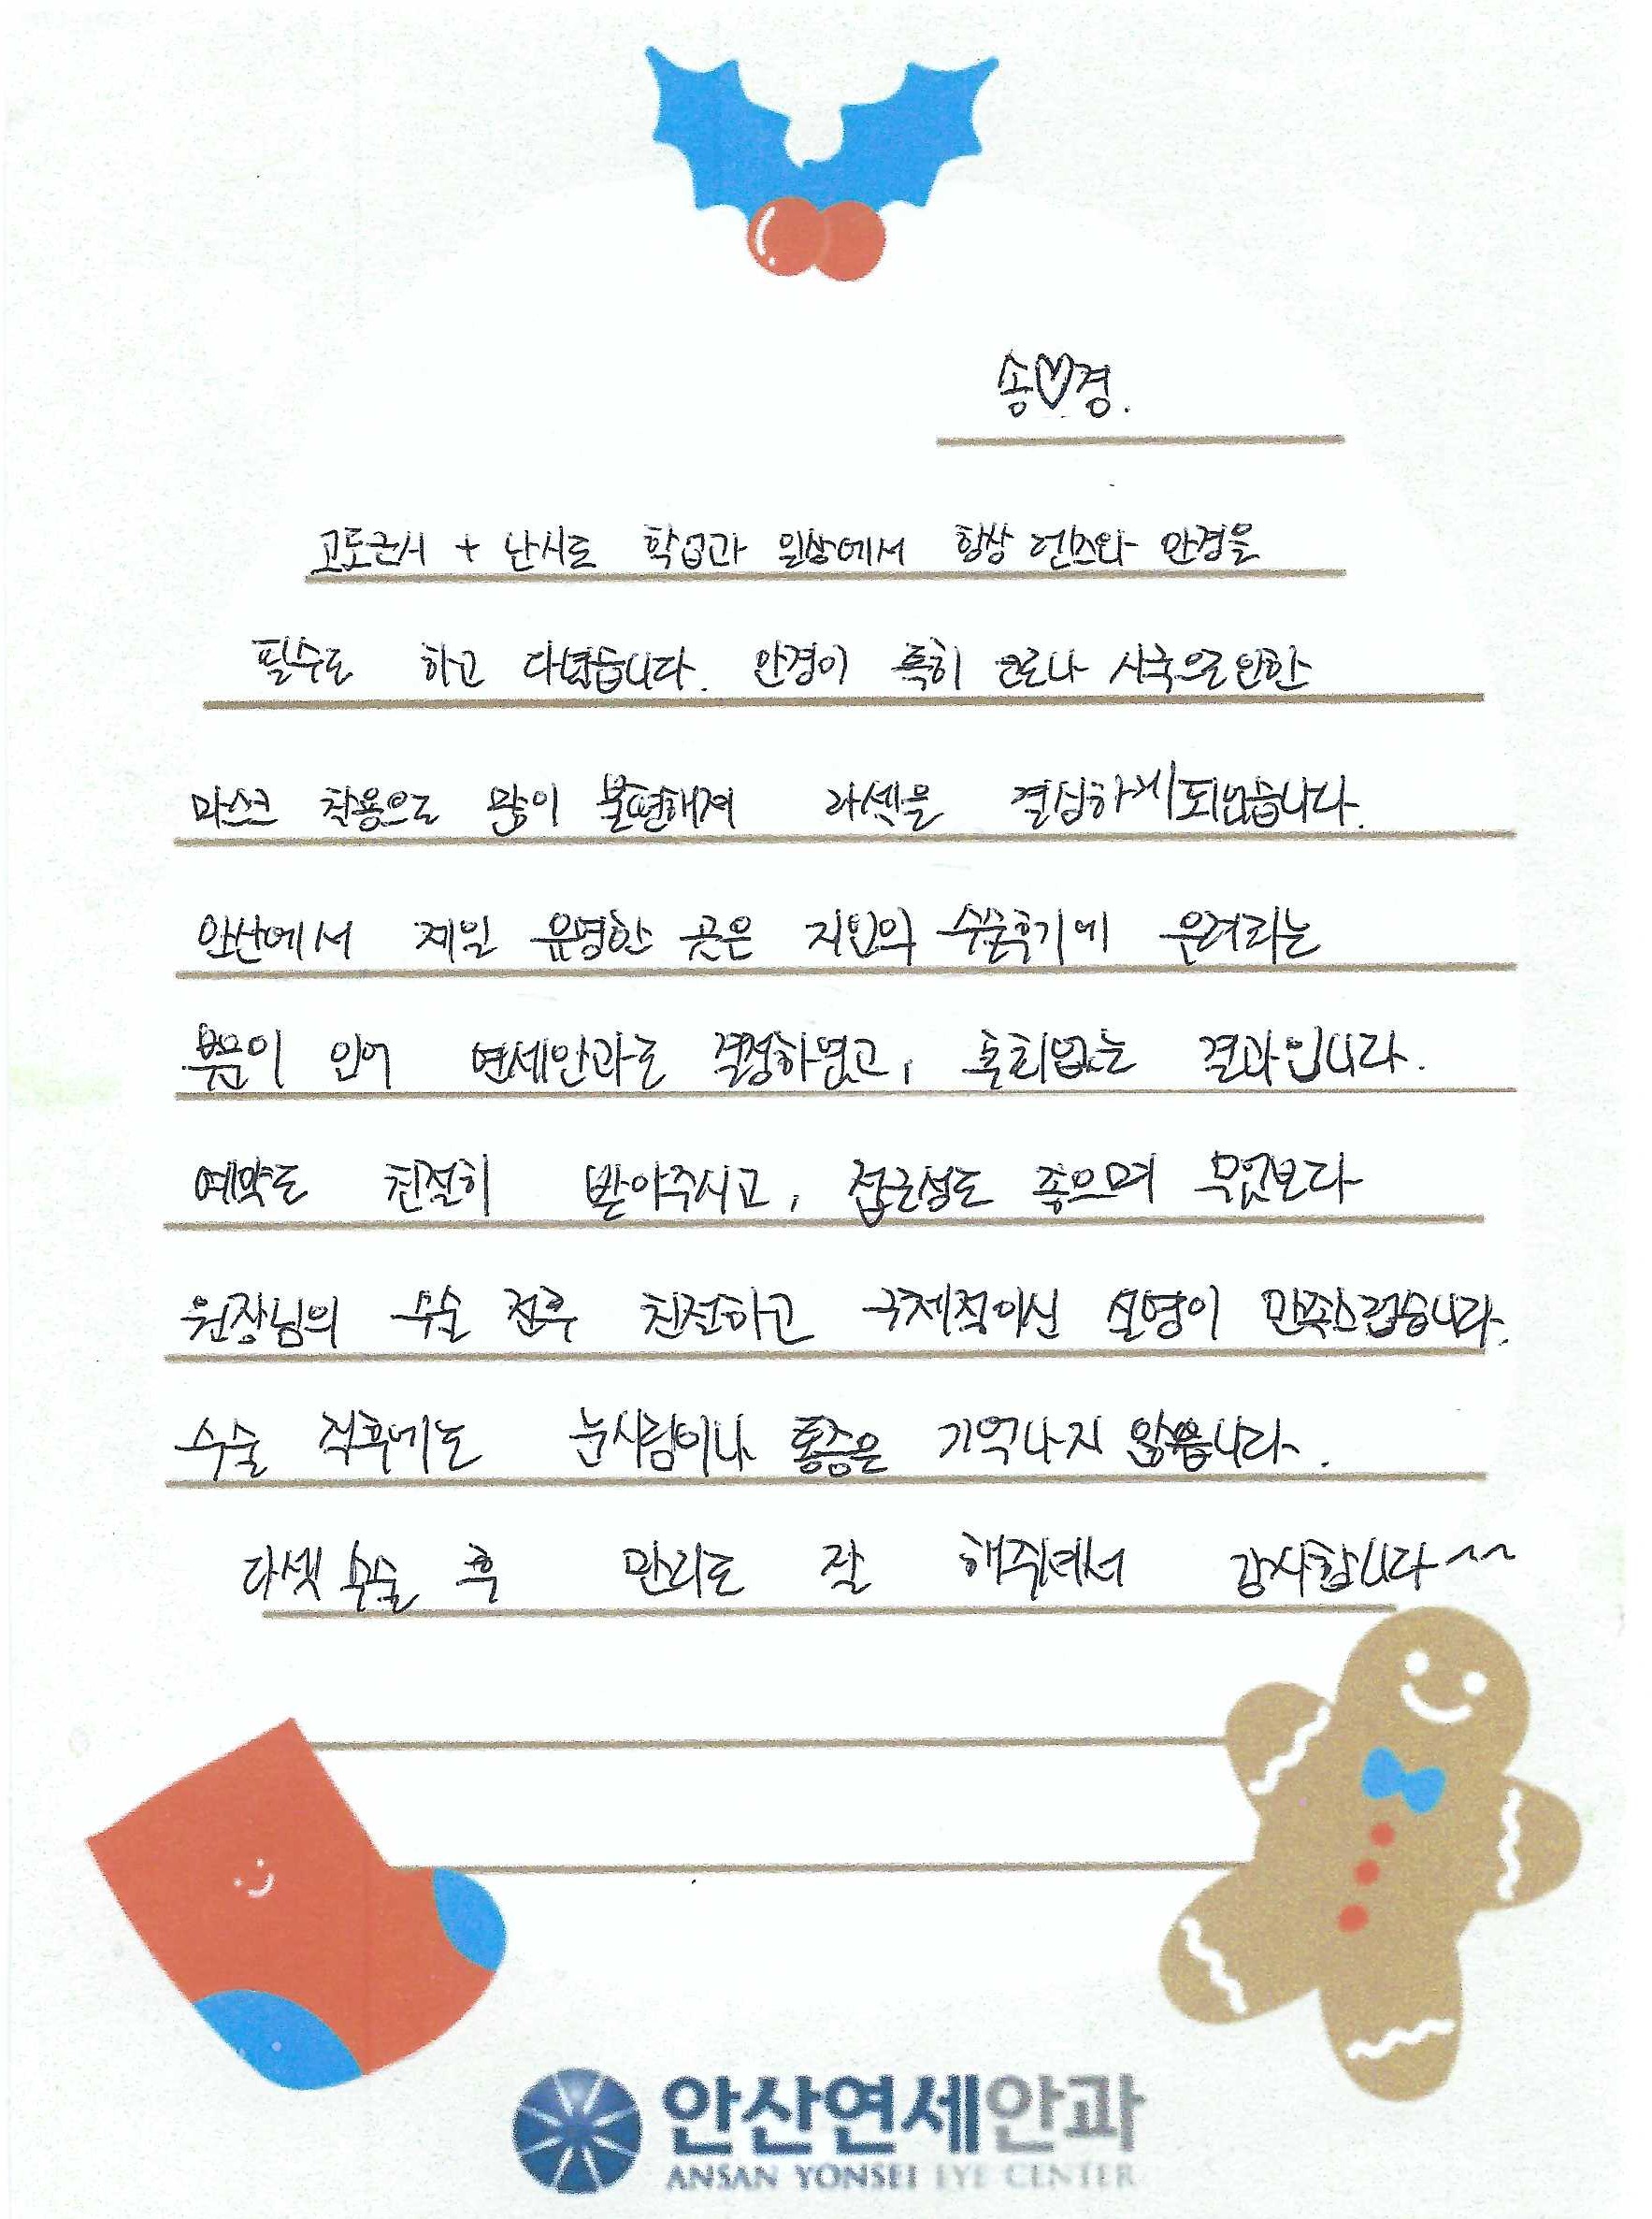 송♡경.
고도근시 + 난시로 학업과 일상에서 항상 렌즈와 안경을
필수로 하고 다녔습니다. 안경이 특히 코로나 시국으로 인한
마스크 착용으로 많이 불편해져 라섹을 결심하게되었습니다.
안산에서 제일 유명한 곳은 지인의 수술후기에 우려라는
부분이 있어 연세안과로 결정하였고, 후회없는 결과입니다.
예약도 친절히 받아주시고, 접근성도 좋으며 무엇보다
원장님의 수술 전후 친절하고 구체적이신 설명이 만족스럽습니다.
수술 직후에는 눈시림이나 통증은 기억나지 않습니다.
라섹 수술 후 관리도 잘 해주셔서 감사합니다~~
안산연세안과
ANSAN YONSEI EYE CENTER